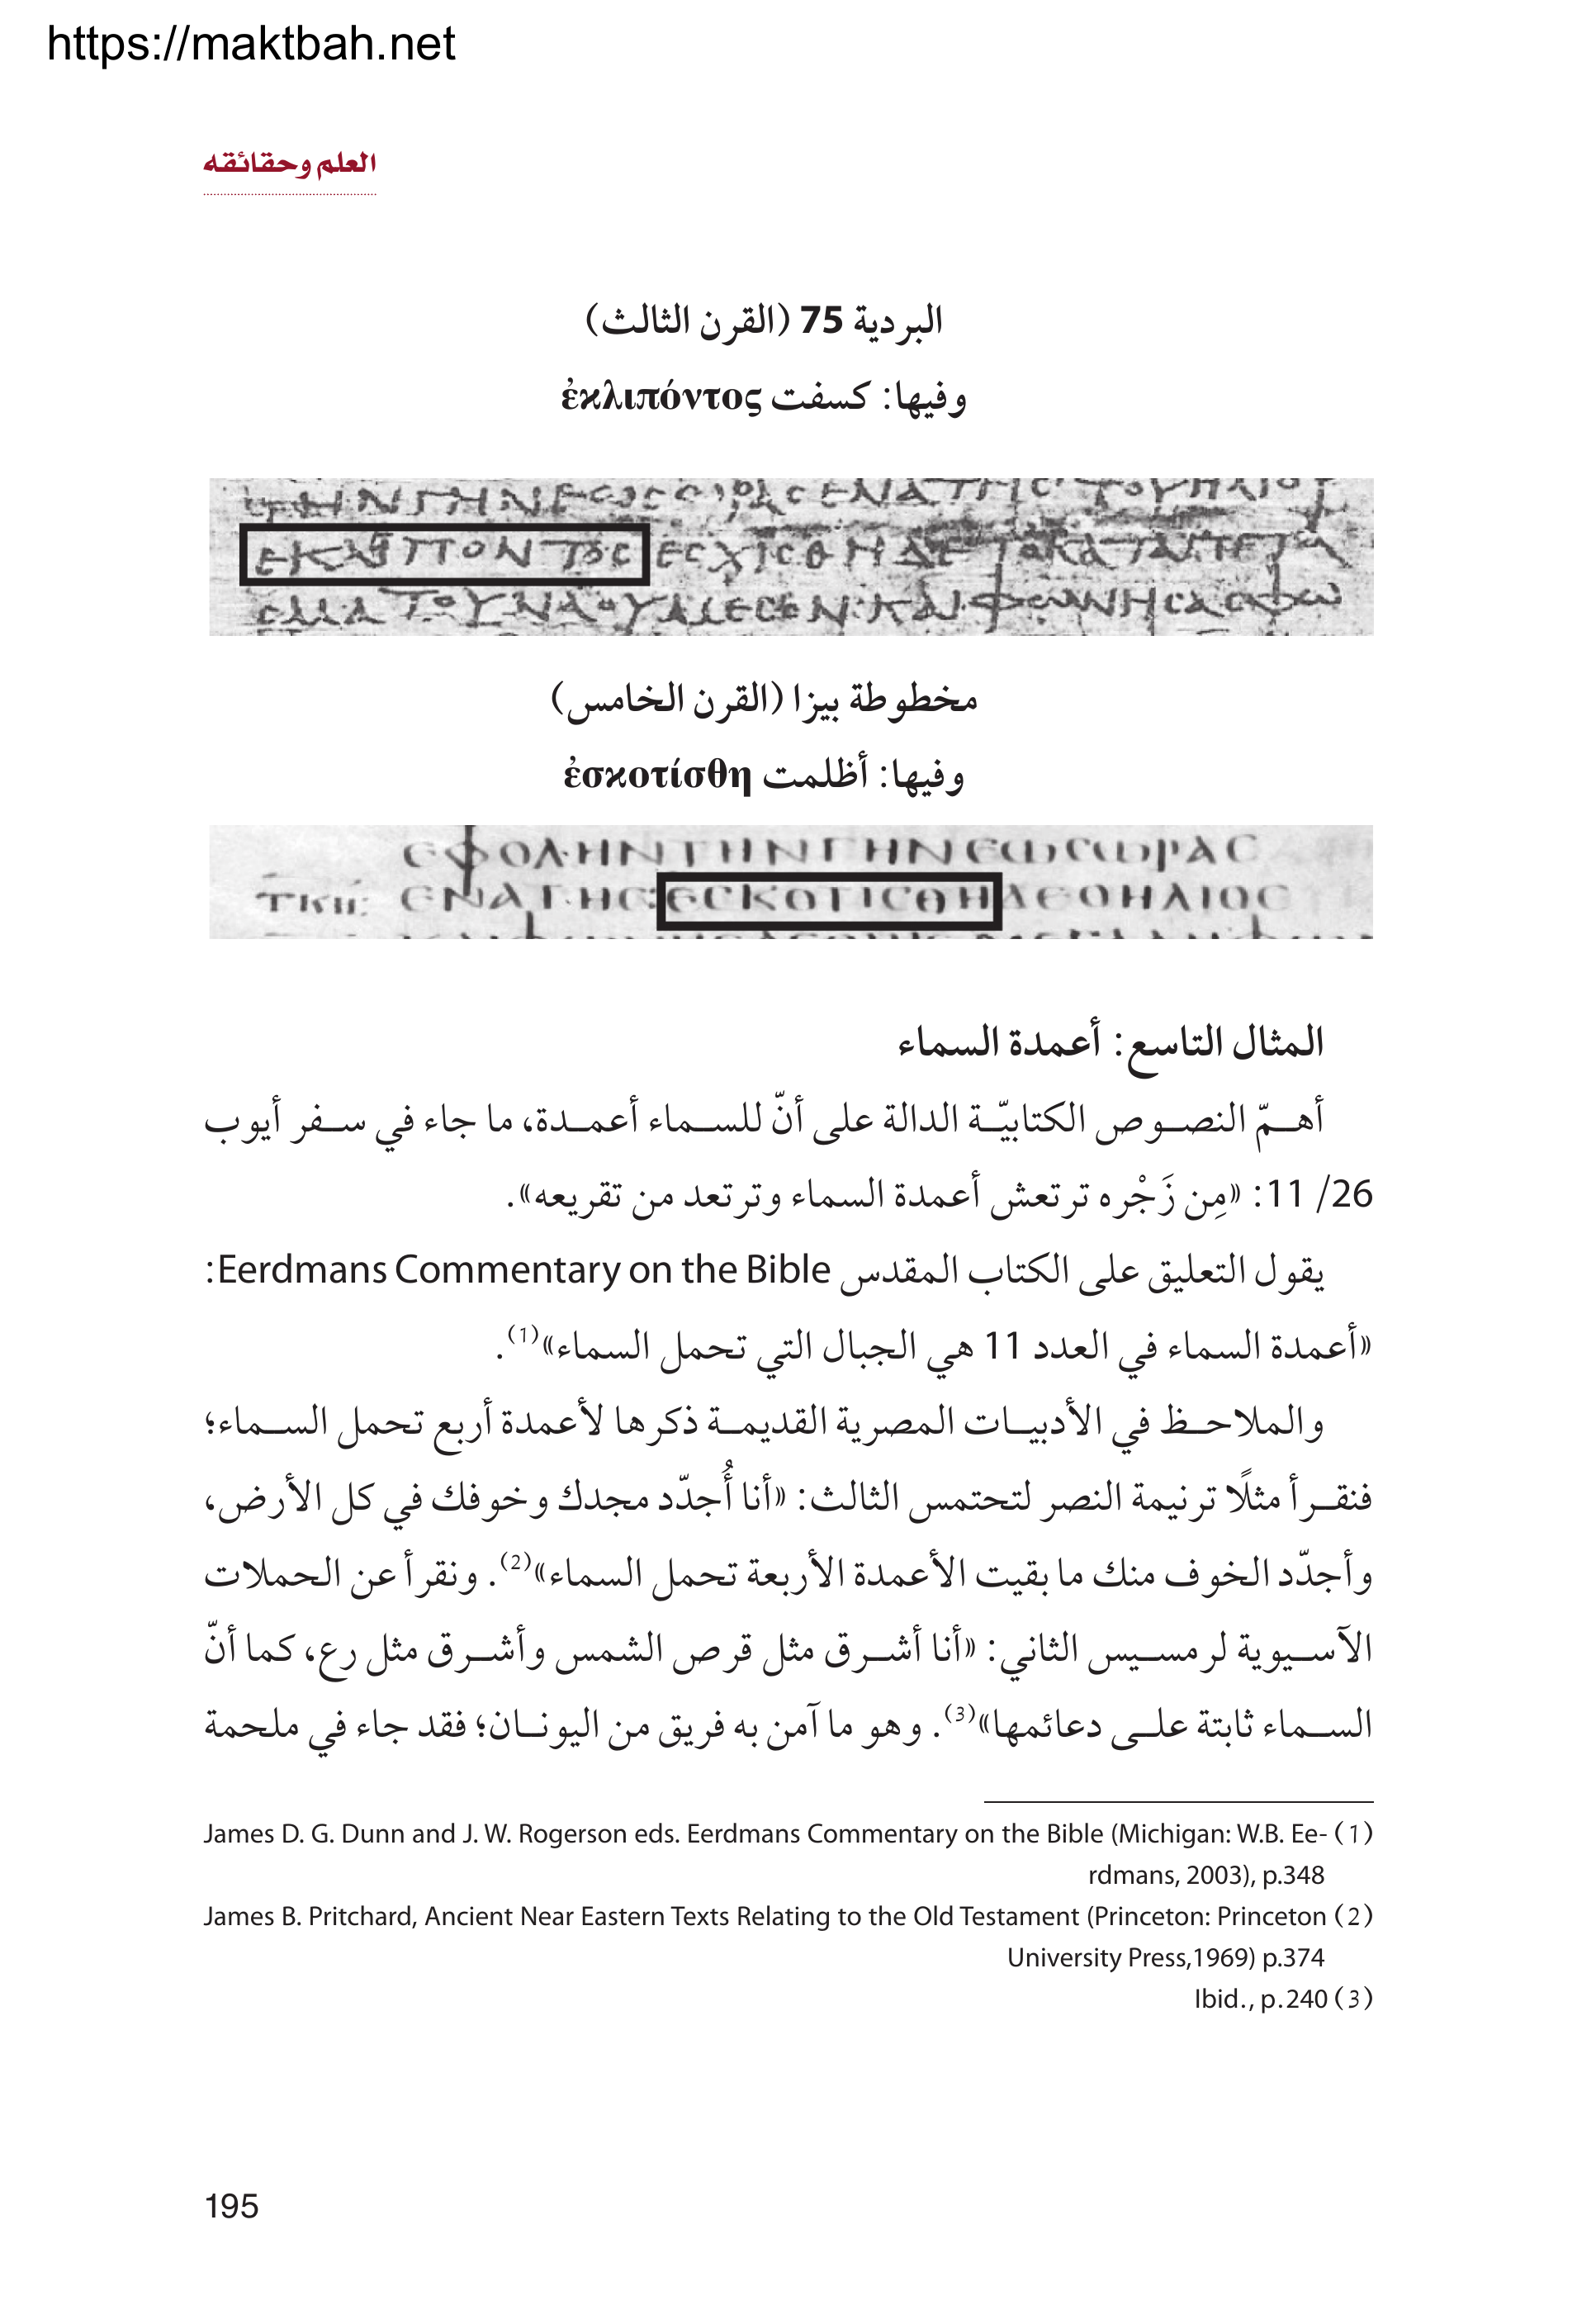 https://maktbah.net
العلم وحقائقه
البردية 75 (القرن الثالث)
وفيها: كسفت ἐκλιπόντος
ΕΣΧΙΣΘΗ ΔΕ ΤΟ ΚΑΤΑΠΕΤΑ
مخطوطة بيزا (القرن الخامس)
وفيها: أظلمت ἐσκοτίσθη
ΕΦΟΛΗΝΤΗΝΓΗΝΕΩСΩΡΑС
ΕΝΑΤΗС:ΕСΚΟΤΙСΘΗΔΕΟΗΛΙΟС
المثال التاسع: أعمدة السماء
أهمّ النصوص الكتابيّة الدالة على أنّ للسماء أعمدة، ما جاء في سفر أيوب
26/ 11: «مِن زَجْره ترتعش أعمدة السماء وترتعد من تقريعه».
يقول التعليق على الكتاب المقدس Eerdmans Commentary on the Bible:
«أعمدة السماء في العدد 11 هي الجبال التي تحمل السماء»(1).
والملاحظ في الأدبيات المصرية القديمة ذكرها لأعمدة أربع تحمل السماء؛
فنقرأ مثلًا ترنيمة النصر لتحتمس الثالث: «أنا أُجدّد مجدك وخوفك في كل الأرض،
وأجدّد الخوف منك ما بقيت الأعمدة الأربعة تحمل السماء»(2). ونقرأ عن الحملات
الآسيوية لرمسيس الثاني: «أنا أشرق مثل قرص الشمس وأشرق مثل رع، كما أنّ
السماء ثابتة على دعائمها»(3). وهو ما آمن به فريق من اليونان؛ فقد جاء في ملحمة
(1) James D. G. Dunn and J. W. Rogerson eds. Eerdmans Commentary on the Bible (Michigan: W.B. Ee-
rdmans, 2003), p.348
(2) James B. Pritchard, Ancient Near Eastern Texts Relating to the Old Testament (Princeton: Princeton
University Press,1969) p.374
(3) Ibid., p.240
195